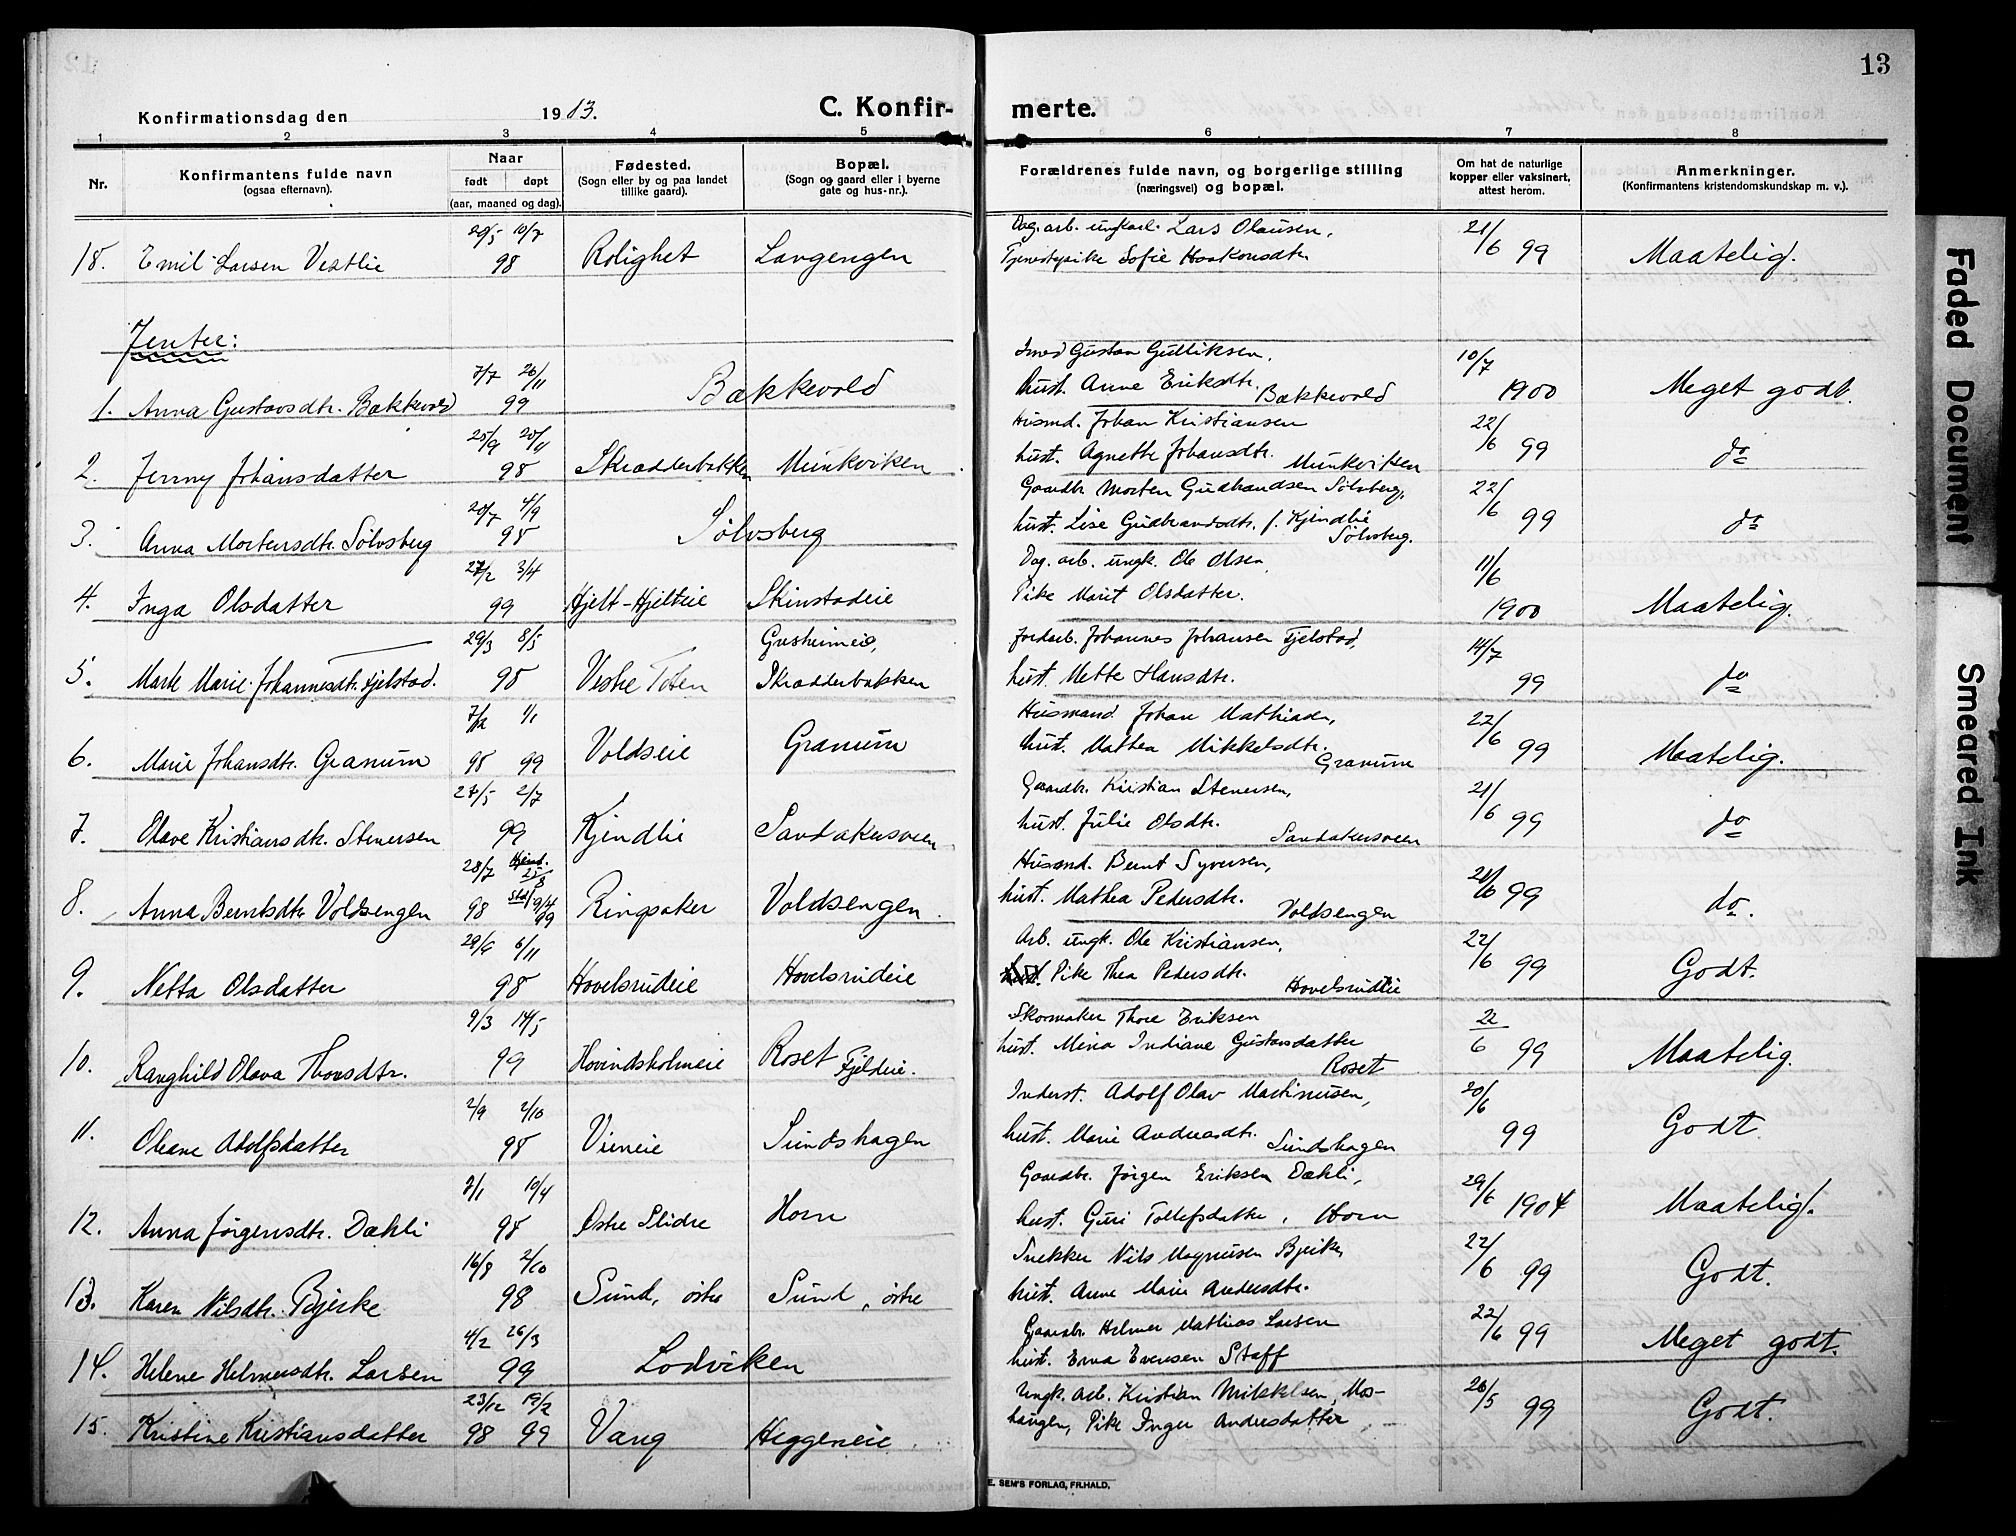 13
Konfirmationsdag den 1913.
C. Konfirmerte.
1 2 3 4 5 6 7 8
Nr.
Konfirmantens fulde navn
(ogsaa efternavn).
Naar
født døpt
(aar, maaned og dag).
Fødested.
(Sogn eller by og paa landet
tillike gaard).
Bopæl.
(Sogn og gaard eller i byerne
gate og hus-nr.).
Forældrenes fulde navn, og borgerlige stilling
(næringsvei) og bopæl.
Om hat de naturlige
kopper eller vaksinert,
attest herom.
Anmerkninger.
(Konfirmantens kristendomskundskap m. v.).
18. Emil Larsen Vestlie 29/5 10/7 98 Rolighet Langengen
Dag. arb. ungkarl Lars Olausen,
Tjenestepike Sofie Haakonsdtr. 21/6 99 Maatelig.
Jenter:
1. Anna Gustavsdtr. Bækkevold 7/7 26/11 99 Bækkevold
Inds Gustav Gulliksen,
hust. Anne Eriksdtr. Bækkevold 10/7 1900 Meget godt.
2. Jenny Johansdatter 25/9 20/11 98 Skrædderbakken Munkviken
Husmd. Johan Kristiansen
hust. Agnethe Johansdtr. Munkviken 22/6 99 do
3. Anna Mortensdtr. Sølvsberg 20/7 4/9 98 Sølvsberg
Gaardbr. Morten Gudbrandsen Sølvsberg,
hust. Lise Gudbrandsdtr. f. Kjendlie Sølvsberg. 22/6 99 do
4. Inga Olsdatter 27/2 3/4 99 Hjelt-Hjelteie Skinstadeie
Dag. arb. ungk. Ole Olsen,
Pike Marit Olsdatter. 11/6 1900 Maatelig.
5. Marte Marie Johannesdtr. Fjelstad. 29/3 8/5 98 Vestre Toten Gusheimeie,
Skrædderbakken
Jordarb. Johannes Johansen Fjelstad,
hust. Mette Hansdtr. 14/7 99 do
6. Marie Johansdtr. Granum 7/12 1/1 98 99 Voldseie Granum
Husmand Johan Mathiasen,
hust. Mathea Mikkelsdtr. Granum 22/6 99 Maatelig.
7. Olave Kristiansdtr. Stenersen 27/5 2/7 99 Kjendlie Sandakersveen
Gaardbr. Kristian Stenersen,
hust. Julie Olsdtr. Sandakersveen 21/6 99 do
8. Anna Berntsdtr Voldsengen 28/7 98 Hjemd. 25/8 Stadf. 9/4 99 Ringsaker Voldsengen.
Husmd. Bernt Syversen,
hust. Mathea Pedersdtr. Voldsengen 21/6 99 do.
9. Netta Olsdatter 29/6 6/11 98 Hovelsrudeie Hovelsrudeie
Arb. ungk. Ole Kristiansen,
Pike Thea Pedersdtr. Hovelsrudeie 22/6 99 Godt.
10. Ragnhild Olava Thorsdtr. 9/3 14/5 99 Hovindsholmeie Roset Fjeldeie.
Skomaker Thore Eriksen
hust. Mina Indiane Gustavsdatter Roset 22/6 99 Maatelig.
11. Oleane Adolfsdatter 2/9 2/10 98 Vieneie Sundshagen
Inderst. Adolf Olav Martinusen,
hust. Marie Andreasdtr. Sundshagen 20/6 99 Godt.
12. Anna Jørgensdtr. Dæhli 7/1 10/4 98 Østre Slidre Horn
Gaardbr. Jørgen Eriksen Dæhli,
hust. Guri Tollefsdatter, Horn 29/6 1904 Maatelig.
13. Karen Nilsdtr. Bjerke 16/8 2/10 98 Sund, østre Sund, østre
Snekker Nils Magnusen Bjerke,
hust. Anne Marie Andersdtr. 22/6 99 Godt.
14. Helene Helmersdtr. Larsen 4/2 26/3 99 Lodviken
Gaardbr. Helmer Mathias Larsen
hust. Erna Evensen Staff 22/6 99 Meget godt.
15. Kristine Kristiansdatter 23/12 19/2 98 99 Vang Heggeneie
Ungk. arb. Kristian Mikkelsen, Mos-
haugen, Pike Inger Andersdatter 26/5 99 Godt.
E. SEM'S FORLAG, FR.HALD,
Faded Document
Smeared Ink